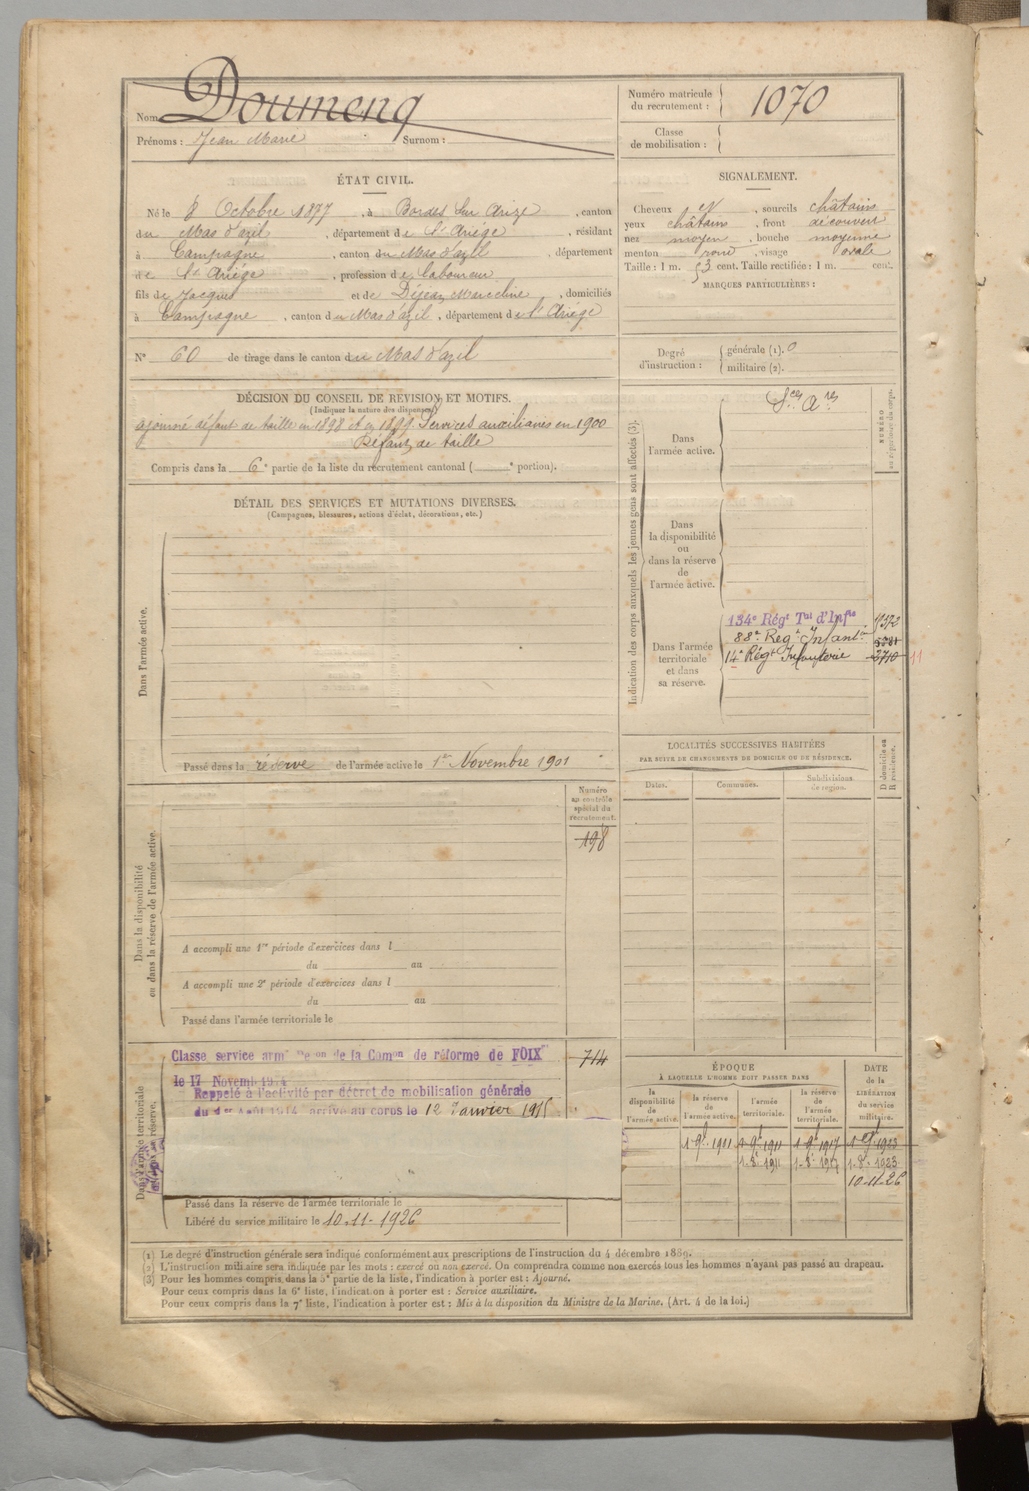 Nom Doumenq
Prénoms : Jean Marie Surnom :
Numéro matricule du recrutement : 1070
Classe de mobilisation :
ÉTAT CIVIL.
Né le 8 Octobre 1877, à Bordes Sur Arize, canton
du Mas d'azil, département de l'Ariège, résidant
à Campagne, canton du Mas d'azil, département
de l'Ariége, profession de laboureur
fils de Jacques et de Déjean Marceline, domiciliés
à Campagne, canton du Mas d'azil, département de l'Ariége
N° 60 de tirage dans le canton du Mas d'azil
SIGNALEMENT.
Cheveux et, sourcils châtains
yeux châtains, front découvert
nez moyen, bouche moyenne
menton rond, visage ovale
Taille : 1 m. 53 cent. Taille rectifiée : 1 m. cent.
MARQUES PARTICULIÈRES :
Degré d'instruction : générale (1). 0
militaire (2).
DÉCISION DU CONSEIL DE RÉVISION ET MOTIFS.
(Indiquer la nature des dispenses)
ajourné défaut de taille en 1898 et en 1899. Services auxiliaires en 1900
Défaut de taille
Compris dans la 6e partie de la liste du recrutement cantonal ( e portion).
DÉTAIL DES SERVICES ET MUTATIONS DIVERSES.
(Campagnes, blessures, actions d'éclat, décorations, etc.)
Dans l'armée active.
Passé dans la réserve de l'armée active le 1er Novembre 1901
Indication des corps auxquels les jeunes gens sont affectés (3).
NUMÉRO au répertoire du corps.
Dans l'armée active.
Sces Ares
Dans la disponibilité ou dans la réserve de l'armée active.
Dans l'armée territoriale et dans sa réserve.
134e Régt Tal d'Infie
88e Regt Infantie
14e Régt Infanterie 2710 11
LOCALITÉS SUCCESSIVES HABITÉES
PAR SUITE DE CHANGEMENTS DE DOMICILE OU DE RÉSIDENCE.
Dates. Communes. Subdivisions de région. D domicile ou R résidence.
Dans la disponibilité ou dans la réserve de l'armée active.
Numéro au contrôle spécial du recrutement.
198
A accompli une 1re période d'exercices dans l
du au
A accompli une 2e période d'exercices dans l
du au
Passé dans l'armée territoriale le
Dans l'armée territoriale
Classe service armé de la Comon de réforme de FOIX
714
le 17 Novemb 1914
Rappelé à l'activité par décret de mobilisation générale
du 1er Août 1914 arrivé au corps le 12 Janvier 1915
Passé dans la réserve de l'armée territoriale le
Libéré du service militaire le 10-11-1926
ÉPOQUE
À LAQUELLE L'HOMME DOIT PASSER DANS
la disponibilité de l'armée active.
la réserve de l'armée active.
l'armée territoriale.
la réserve de l'armée territoriale.
DATE de la LIBÉRATION du service militaire.
1-9bre 1901 1-9bre 1911 1-9bre 1917 1-9bre 1923
1-8bre 1911 1-8bre 1917 1-8bre 1923
10-11-26
(1) Le degré d'instruction générale sera indiqué conformément aux prescriptions de l'instruction du 4 décembre 1889.
(2) L'instruction militaire sera indiquée par les mots : exercé ou non exercé. On comprendra comme non exercés tous les hommes n'ayant pas passé au drapeau.
(3) Pour les hommes compris dans la 5e partie de la liste, l'indication à porter est : Ajourné.
Pour ceux compris dans la 6e liste, l'indication à porter est : Service auxiliaire.
Pour ceux compris dans la 7e liste, l'indication à porter est : Mis à la disposition du Ministre de la Marine. (Art. 4 de la loi.)